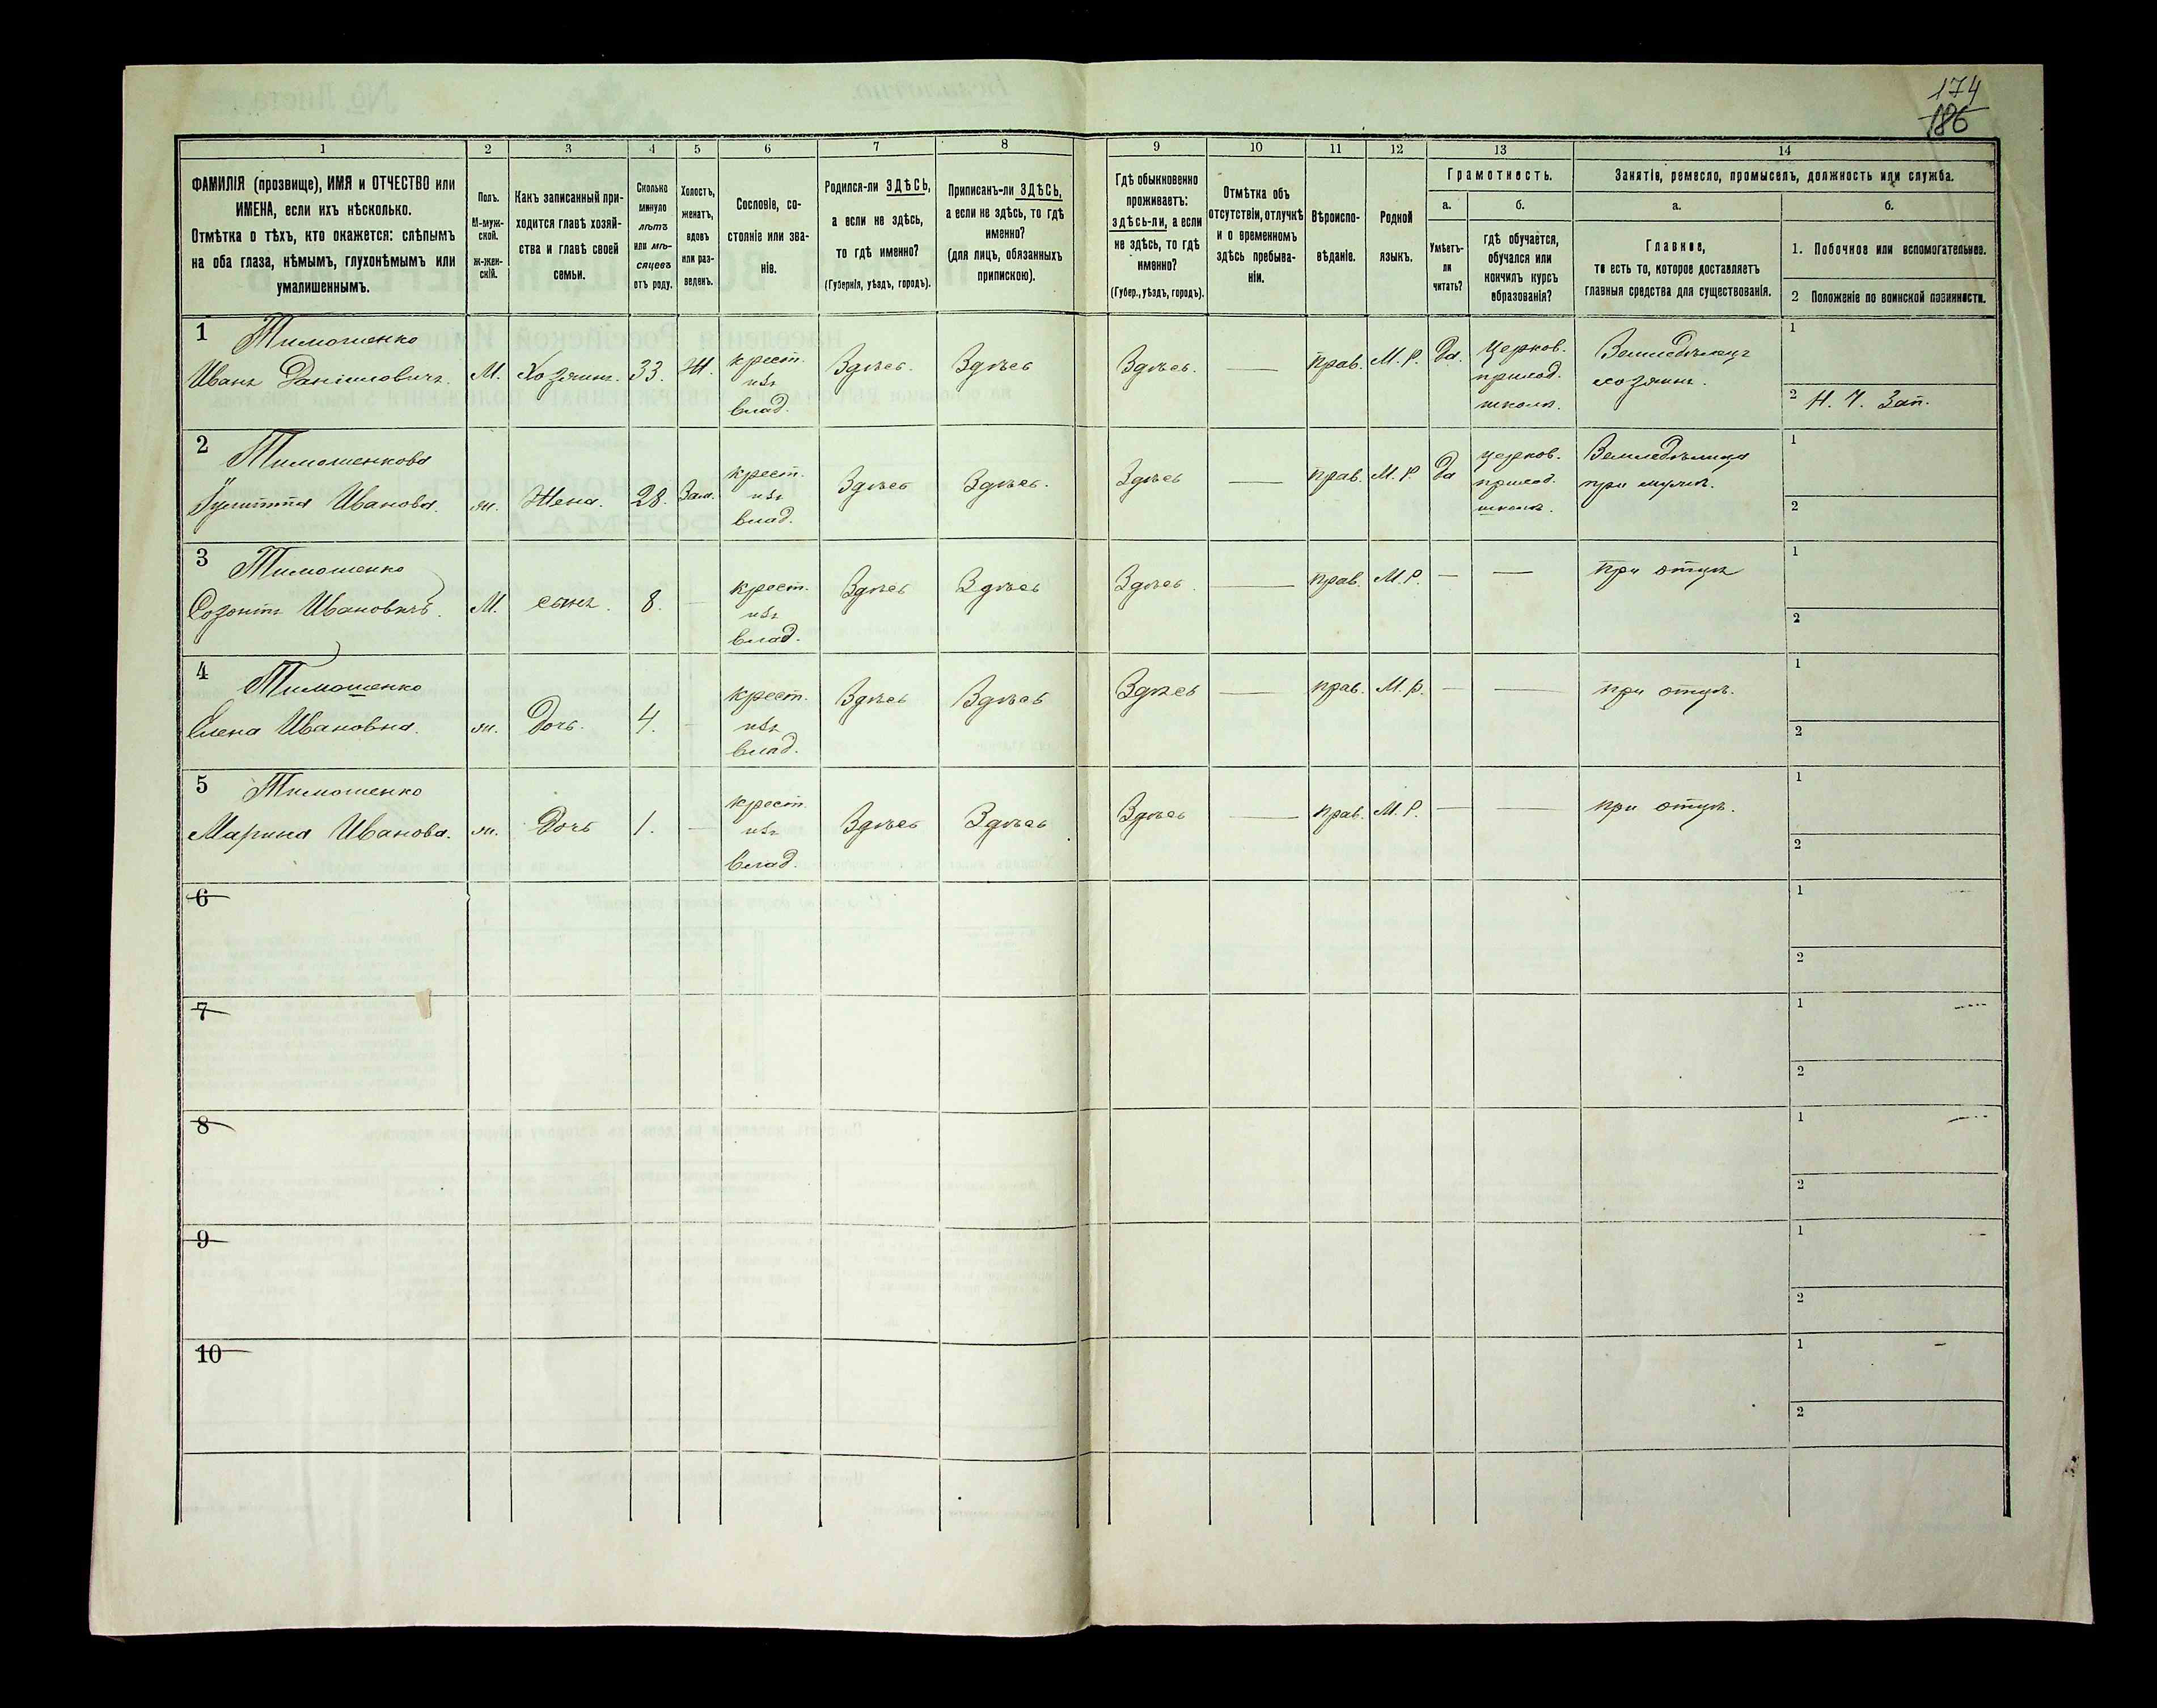 174
186
1 2 3 4 5 6 7 8 9 10 11 12 13 14
ФАМИЛІЯ (прозвище), ИМЯ и ОТЧЕСТВО или
ИМЕНА, если ихъ нѣсколько.
Отмѣтка о тѣхъ, кто окажется: слѣпымъ
на оба глаза, нѣмымъ, глухонѣмымъ или
умалишеннымъ.
Полъ.
М-муж-
ской.
Ж-жен-
скій.
Какъ записанный при-
ходится главѣ хозяй-
ства и главѣ своей
семьи.
Сколько
минуло
лѣтъ
или мѣ-
сяцевъ
отъ роду.
Холостъ,
женатъ,
вдовъ
или раз-
веденъ.
Сословіе, со-
стояніе или зва-
ніе.
Родился-ли ЗДѢСЬ,
а если не здѣсь,
то гдѣ именно?
(Губернія, уѣздъ, городъ).
Приписанъ-ли ЗДѢСЬ,
а если не здѣсь, то гдѣ
именно?
(для лицъ, обязанныхъ
припискою).
Гдѣ обыкновенно
проживаетъ:
здѣсь-ли, а если
не здѣсь, то гдѣ
именно?
(Губер., уѣздъ, городъ).
Отмѣтка объ
отсутствіи, отлучкѣ
и о временномъ
здѣсь пребыва-
ніи.
Вѣроиспо-
вѣданіе.
Родной
языкъ.
Грамотность.
а.
Умѣетъ-
ли
читать?
б.
гдѣ обучается,
обучался или
кончилъ курсъ
образованія?
Занятіе, ремесло, промыселъ, должность или служба.
а.
Главное,
то есть то, которое доставляетъ
главныя средства для существованія.
б.
1. Побочное или вспомогательное.
2 Положеніе по воинской повинности.
1 Тимошенко
Иванъ Даніиловичъ. М. Хозяинъ. 33. Ж. крест. изъ влад. Здѣсь. Здѣсь Здѣсь. — прав. М. Р. Да. Церков. приход. школѣ. Земледѣлецъ хозяинъ. 1
2 Н. Ч. Зап.
2 Тимошенкова
Иванова. ж. Жена. 28. Зам. крест. изъ влад. Здѣсь Здѣсь. Здѣсь прав. М. Р. Да церков. приход. школѣ. Земледѣлица при мужѣ. 1
2
3 Тимошенко
Созонтъ Ивановичъ. М. сынъ. 8. — крест. изъ влад. Здѣсь Здѣсь Здѣсь. — прав. М. Р. — — при отцѣ 1
2
4 Тимошенко
Елена Ивановна. ж. Дочь. 4. - крест. изъ влад. Здѣсь Здѣсь Здѣсь — прав. М. р. — — при отцѣ. 1
2
5 Тимошенко
Марина Иванова. ж. Дочь 1. — крест. изъ влад. Здѣсь Здѣсь Здѣсь — прав. М. Р. — — при отцѣ. 1
2
6 1
2
7 1
2
8 1
2
9 1
2
10 1
2